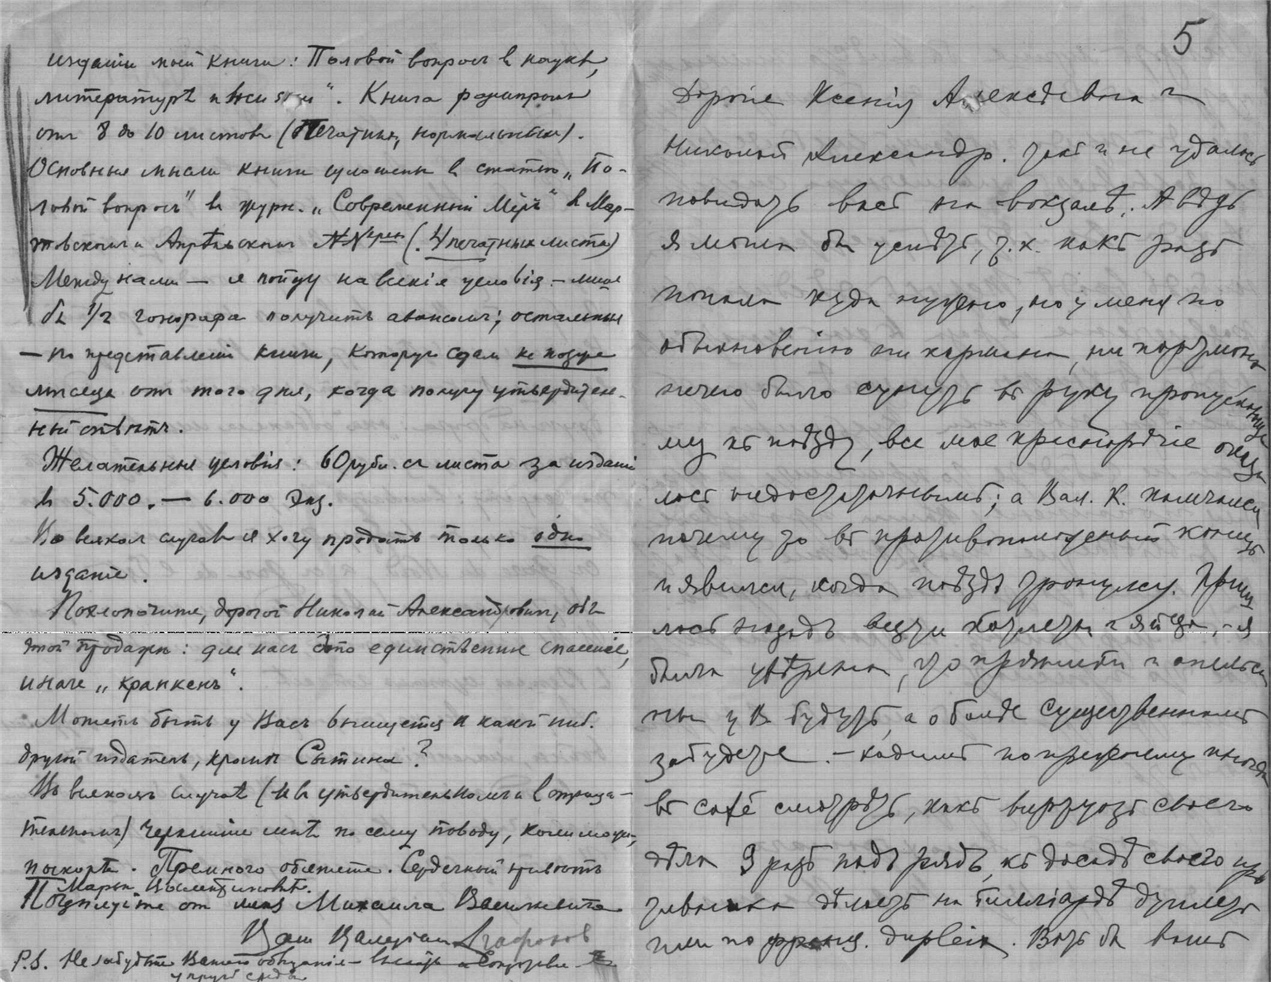 изданіи моей книги: Половой вопросъ въ наукѣ,
литературѣ и жизни". Книга размѣромъ
отъ 8 до 10 листовъ (печатных, нормальныхъ).
Основныя мысли книги изложены въ статьѣ „По-
ловой вопросъ" въ журн. „Современный Міръ" въ Мар-
товскомъ и Апрѣльскомъ №№ (4 печатныхъ листа)
Между нами — я пойду на всякія условія — лишь
бы 1/2 гонорара получить авансомъ; остальные
— по представленіи книги, которую сдамъ не позже
мѣсяца отъ того дня, когда получу утвердитель-
ный отвѣтъ.
Желательныя условія: 60 руб. съ листа за изданіе
въ 5.000. — 6.000 экз.
Во всякомъ случаѣ я хочу продать только одно
изданіе.
Похлопочите, дорогой Николай Александровичъ, объ
этой продажѣ: для насъ это единственное спасеніе,
иначе „кранкенъ".
Можетъ быть у Васъ выищется и какой ниб.
другой издатель, кромѣ Сытина?
Во всякомъ случаѣ (и въ утвердительномъ и въ отрица-
тельномъ) черкните мнѣ по сему поводу, коли можно,
поскорѣе. Премного обяжете. Сердечный привѣтъ
Поцѣлуйте отъ меня Михаила Васильевича
Вашъ Валеріанъ Агафоновъ
P.S. Не забудьте Вашего обѣщанія —
5
Дорогіе Ксенія Алексѣевна и
Николай Александр. Такъ и не удалось
повидать васъ на вокзалѣ. А вѣдь
я могла бы успѣть, т.к. какъ разъ
попала куда нужно, но у меня по
обыкновенію ни кармана, ни портмонэ
нечего было сунуть въ руку пропускающе
му къ поѣзду, все мое краснорѣчіе оказа
лось недостаточнымъ; а Вал. К. помчался
почему то въ противоположный конецъ
и явился, когда поѣздъ тронулся. Приш
лось назадъ везти котлеты и яйца, — я
была увѣрена, что и апельси
ны у В. будутъ, а о болѣе существенномъ
забудете. — Ходимъ по прежнему иногда
въ café смотрѣть, какъ виртуозъ своего
дѣла 3 разъ подъ рядъ, къ досадѣ своего
дѣлаетъ на билліардѣ дуплетъ
или по франц. Вотъ бы вамъ